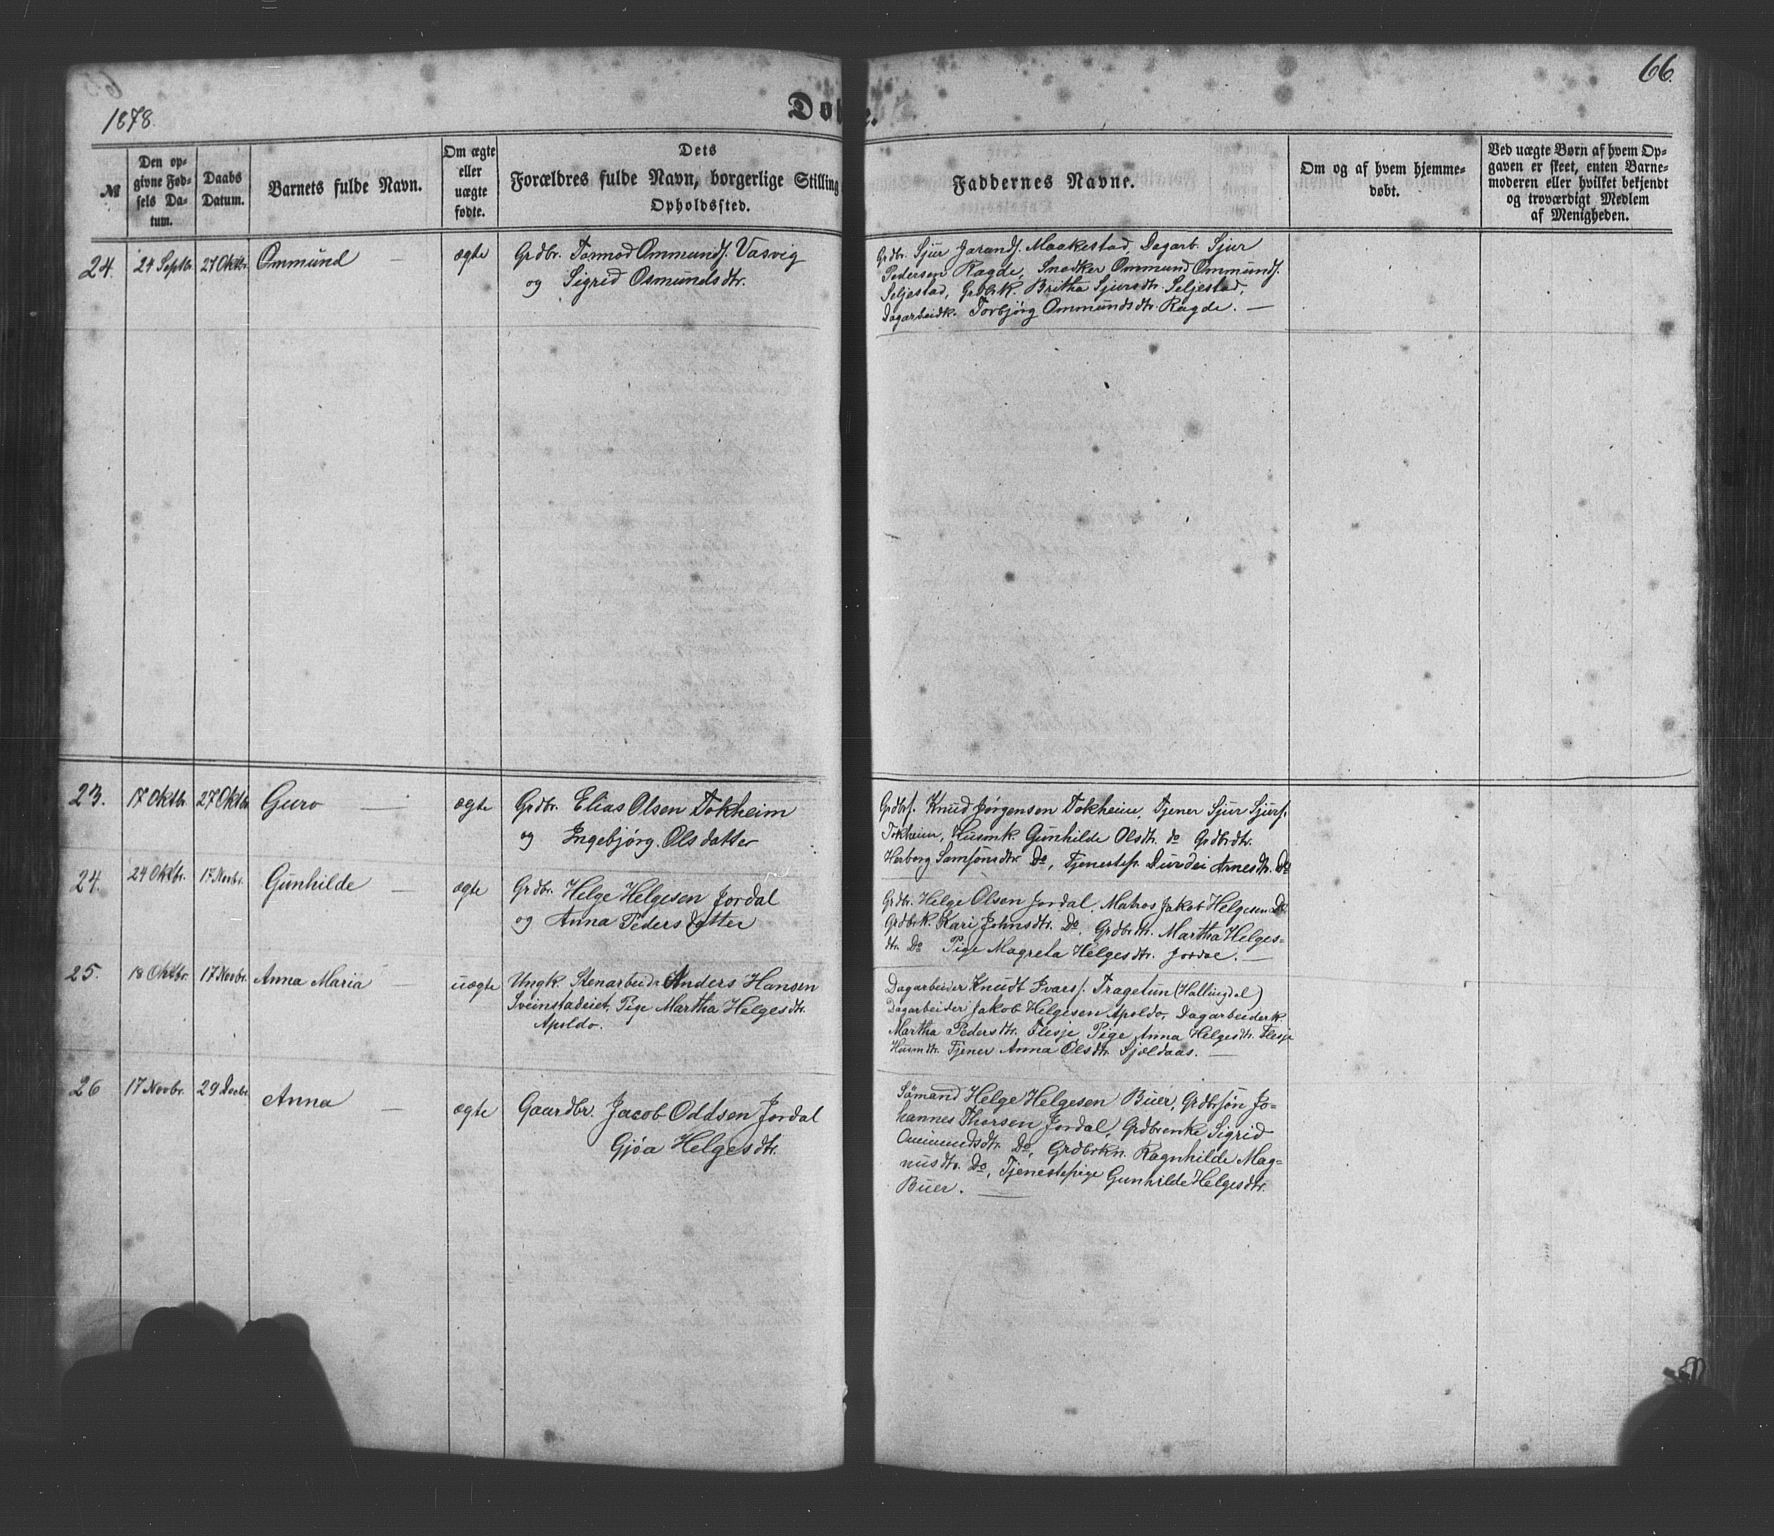 1878.
Døbte.
66.
№
Den opgivne Fødsels Datum.
Daabs Datum.
Barnets fulde Navn.
Om ægte eller uægte fødte.
Dets Forældres fulde Navn, borgerlige Stilling
Opholdssted.
Faddernes Navne.
Om og af hvem hjemmedøbt.
Ved uægte Børn af hvem Opgaven er skeet, enten Barnemoderen eller hvilket bekjendt og troværdigt Medlem af Menigheden.
24. 24 Septbr. 27 Oktbr. Ommund — ægte Grdbr. Tormod Ommunds. Vasvig
og Sigrid Osmundsdtr.
Grdbr. Sjur Jarands. Maakestad, Dagarb. Sjur
Pedersen Ragde, Snedker Ommund Ommunds.
Seljestad, Grdbrk. Britha Sjursdtr. Seljestad,
Dagarbeidk. Torbjørg Ommundsdtr. Ragde. —
23. 17 Oktbr. 27 Oktbr. Guro — ægte Grdbr. Elias Olsen Tokheim
og Ingebjørg Olsdatter
Grdbrs. Knud Jørgensen Tokheim, Tjener Sjur Sjurs.
Tokheim, Husmk. Gunhilde Olsdtr. do Grdbrdtr.
Herborg Samsonsdtr. Do, Tjenestep. Durdei Arnesdtr. Do
24. 24 Oktbr. 17 Novbr. Gunhilde — ægte Grdbr. Helge Helgesen Jordal
og Anna Pedersdatter
Grdbr. Helge Olsen Jordal, Matros Jakob Helgesen Do.
Grdbrk. Kari Johnsdtr. Do, Grdbrdtr. Martha Helges-
dtr. Do Pige Magreta Helgesdtr. Jordal. —
25. 18 Oktbr. 17 Novbr. Anna Maria — uægte Ungk. Stenarbeidr. Anders Hansen
Sveinstadeiet, Pige Martha Helgesdtr.
Apoldo.
Dagarbeider Knudt Ivars. Tragetun (Hallingdal)
Dagarbeider Jakob Helgesen Apoldo, Dagarbeiderk.
Martha Pedersdtr. Flesje Pige Anna Helgesdtr. Flesje
Husmdtr. Tjener Anna Olsdtr. Sjoldaas. —
26 17 Novbr. 29 Decbr. Anna — ægte Gaardbr. Jacob Oddsen Jordal
Gjøa Helgesdtr.
Sömand Helge Helgesen Buer, Grdbrsøn Jo-
hannes Thorsen Jordal, Grdbrenke Sigrid
Ommundsdtr. Do, Grdbrkn. Ragnhilde Mag-
nusdtr. Do, Tjenestepige Gunhilde Helgesdtr.
Buer. —